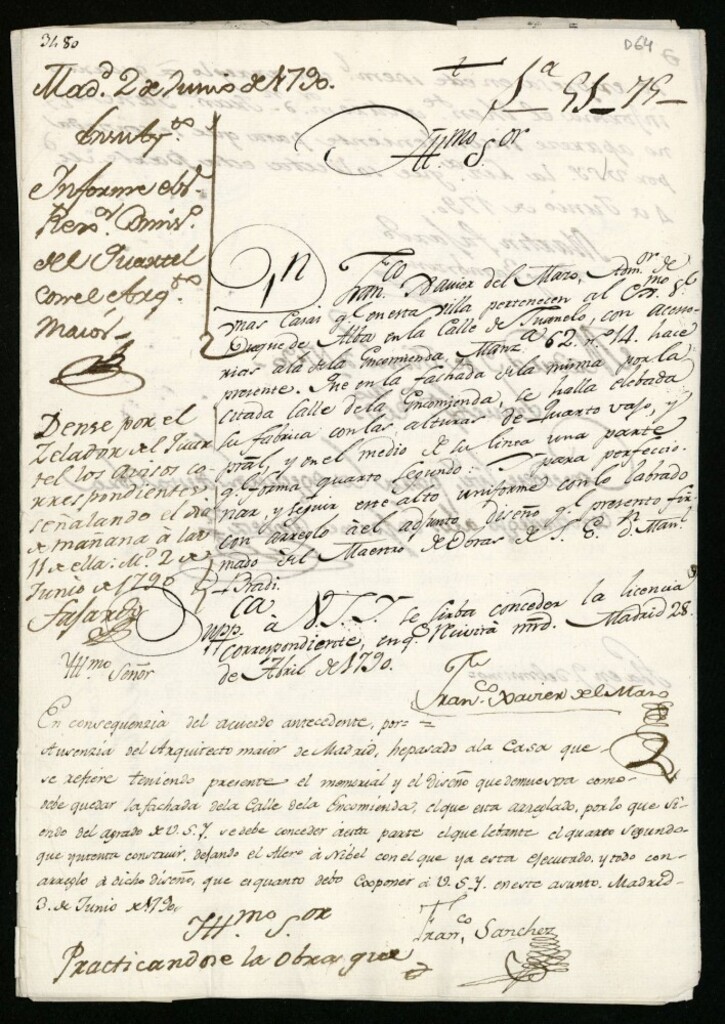 3480
D64
1ª 51-75
Mad.d 2 de Junio de 1790.
En su Ay.to
Informe el S.r
Rex.or Comis.o
del Quartel
con el Arq.to
maior
Dense por el
Zelador del Quar
tel los avisos co
rrespondientes
señalando el dia
de mañana à las
11 de ella: M.d 2 de
Junio de 1790
Fajardo
Yll.mo Sor
Dn Fran.co Xavier del Mazo, Adm.or de
unas Casas q.e en esta villa pertenecen al Ex.mo S.r
Duque de Alba en la Calle de Juanelo, con acceso-
rias à la de la Encomienda, Manz.a 62. n.o 14. hace
presente: Que en la fachada de la misma por la
citada Calle de la Encomienda, se halla elebada
su fabrica con las alturas de quarto vajo, y
pral, y en el medio de su linea una parte
q.e forma quarto segundo: Y para perfeccio-
nar, y seguir este alto uniforme con lo labrado
con arreglo à el adjunto diseño q.e presento fir
mado de el Maestro de Obras de S. E. dn Man.l
Bradi.
Supp.ca à V.S.Y. se sirba conceder la licencia
correspondiente, en q.e recivirà mrd. Madrid 28
de Abril de 1790.
Fran.co Xavier del Mazo
Yll.mo Señor
En consequenzia del acuerdo antecedente, por
Ausenzia del Arquitecto maior de Madrid, hepasado ala Casa que
se refiere teniendo presente el memorial y el Diseño que demuestra como
debe quedar la fachada dela Calle dela Encomienda, el que esta arreglado, por lo que Si-
endo del agrado de V.S.Y. se debe conceder à esta parte el que lebante el quarto Segundo
que yntenta construir, dejando el Alero à Nibel con el que ya esta ejecutado, y todo con
arreglo à dicho diseño, que es quanto debo Cooponer à V.S.Y. en este asunto. Madrid
3. de Junio de 1790.
Fran.co Sanchez
Yll.mo S.or
Practicandose la Obra que